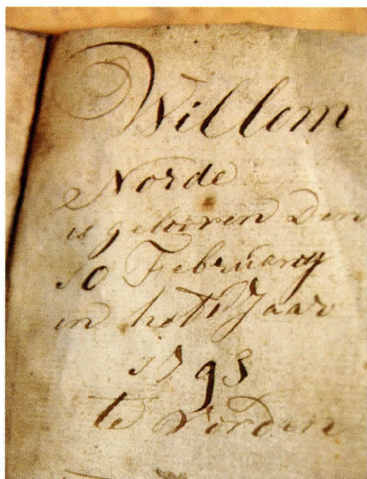 Willem
Norde
is geboren Den
10 February
in het Jaar
1793
te vorden